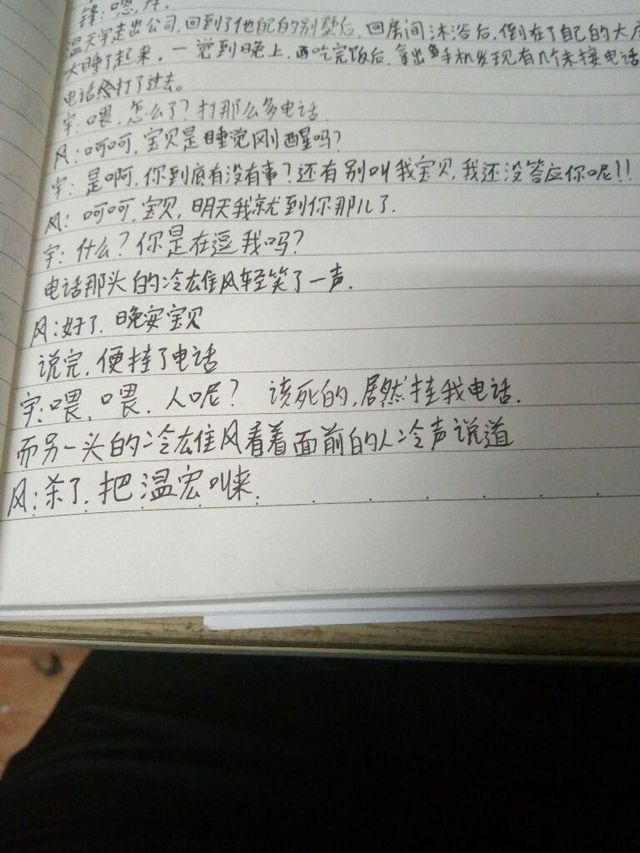 锋:嗯,拜.
温天宇走出公司,回到了他自己的别墅后,回房间沐浴后,倒在了自己的大床
大睡了起来,一觉到晚上,吃完饭后,拿出手机发现有几个未接电话
电话打了过去。
宇:喂,怎么了?打那么多电话.
风:呵呵,宝贝是睡觉刚醒吗?
宇:是啊,你到底有没有事?还有别叫我宝贝,我还没答应你呢!!
风:呵呵,宝贝,明天我就到你那儿了.
宇:什么?你是在逗我吗?
电话那头的冷雄风轻笑了一声.
风:好了.晚安宝贝
说完,便挂了电话
宇:喂,喂.人呢?该死的,居然挂我电话.
而另一头的冷雄风看着面前的人冷声说道
风:杀了.把温宏叫来.